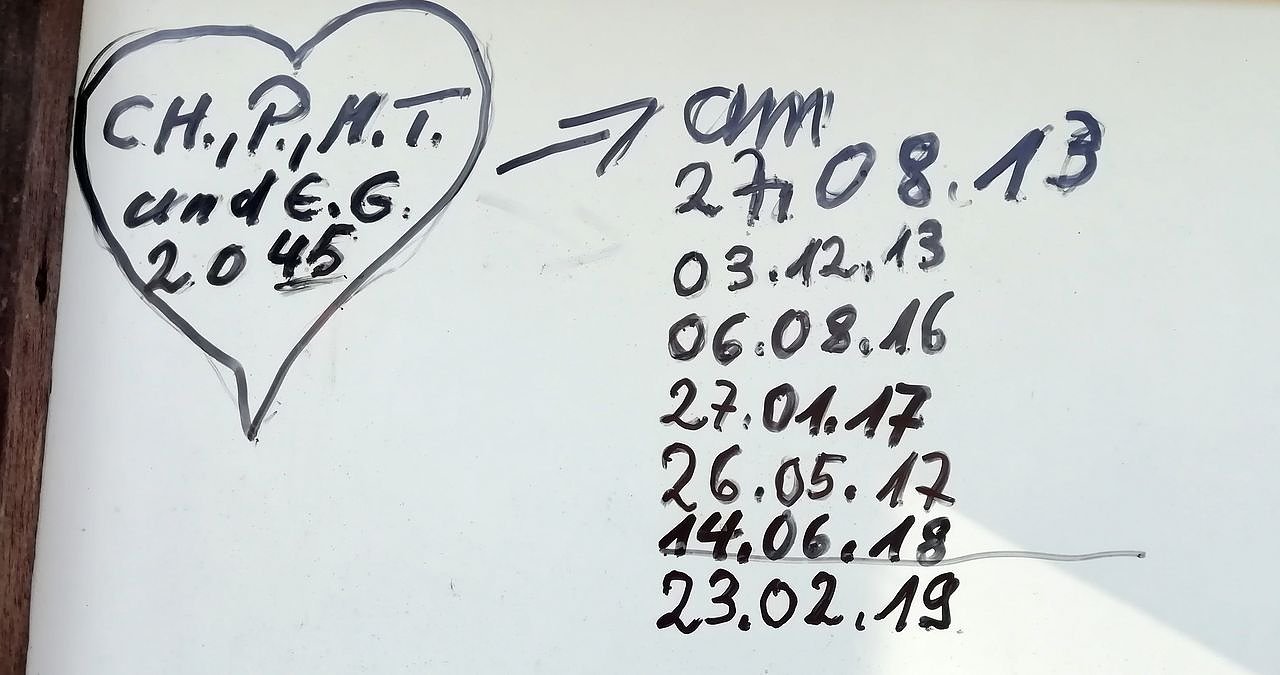 CH., P., M. T.
und E. G.
2045
am
27.08.13
03.12.13
06.08.16
27.01.17
26.05.17
14.06.18
23.02.19